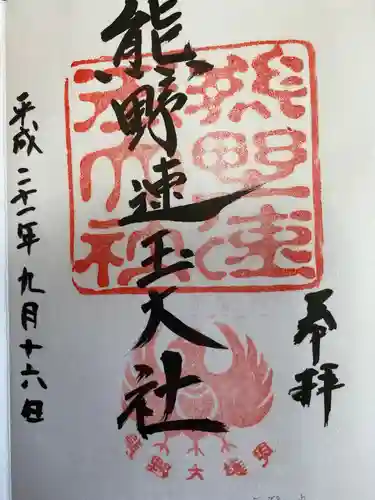 奉拝
熊野速玉大社
平成二十一年九月十六日
熊野速玉大社
熊野大権現